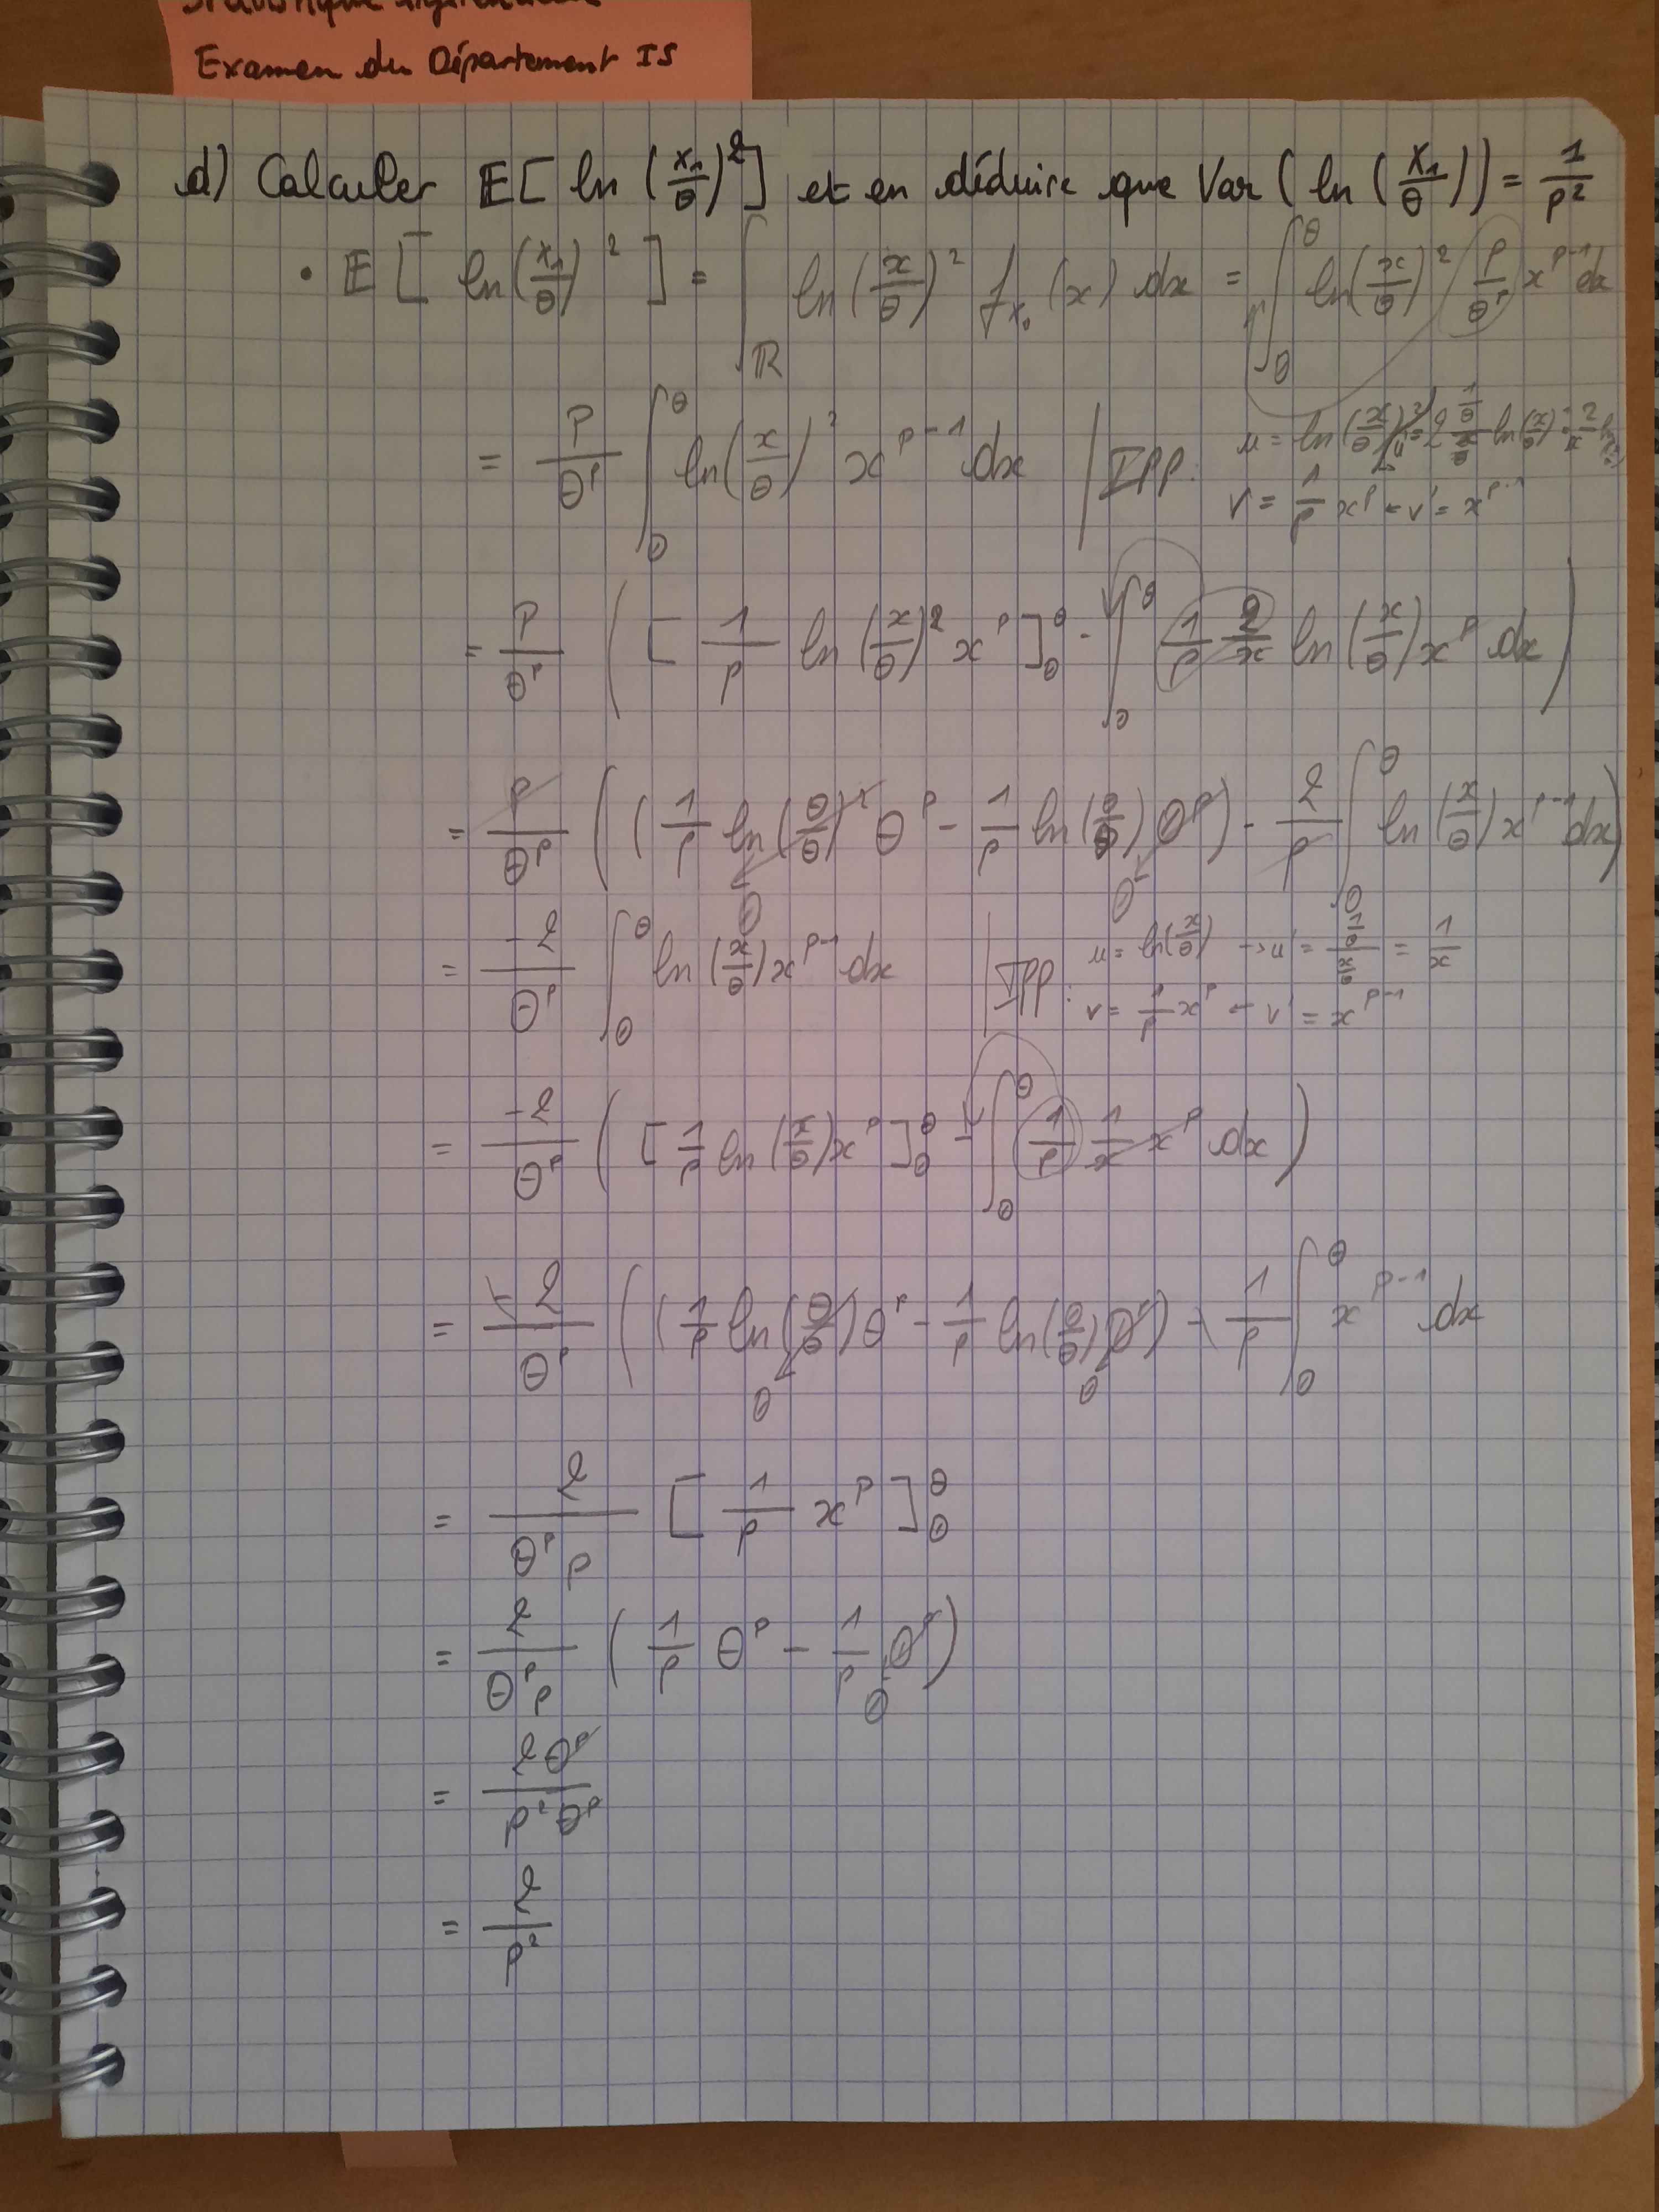 Examen du Département IS
d) Calculer 𝔼[ ln (X₁/θ)²] et en déduire que Var( ln (X₁/θ)) = 1/p²
• 𝔼[ ln(X₁/θ)² ] = ∫_ℝ ln(x/θ)² f_X₁(x) dx = ∫_0^θ ln(x/θ)² p/θ^p x^(p-1) dx
= p/θ^p ∫_0^θ ln(x/θ)² x^(p-1) dx | IPP: u = ln(x/θ)² u' = 2 (1/θ)/(x/θ) ln(x/θ) = 2/x ln(x/θ)
v = 1/p x^p ← v' = x^(p-1)
= p/θ^p ( [ 1/p ln(x/θ)² x^p ]_0^θ - ∫_0^θ 1/p 2/x ln(x/θ) x^p dx )
= p/θ^p ( ( 1/p ln(θ/θ)² θ^p - 1/p ln(0/θ) 0^p ) - 2/p ∫_0^θ ln(x/θ) x^(p-1) dx )
0 0
= -2/θ^p ∫_0^θ ln(x/θ) x^(p-1) dx | IPP: u = ln(x/θ) → u' = (1/θ)/(x/θ) = 1/x
v = 1/p x^p ← v' = x^(p-1)
= -2/θ^p ( [ 1/p ln(x/θ) x^p ]_0^θ - ∫_0^θ 1/p 1/x x^p dx )
= -2/θ^p ( ( 1/p ln(θ/θ) θ^p - 1/p ln(0/θ) 0^p ) - 1/p ∫_0^θ x^(p-1) dx
0 0
= 2/(θ^p p) [ 1/p x^p ]_0^θ
= 2/(θ^p p) ( 1/p θ^p - 1/p 0^p )
0
= 2θ^p/(p² θ^p)
= 2/p²